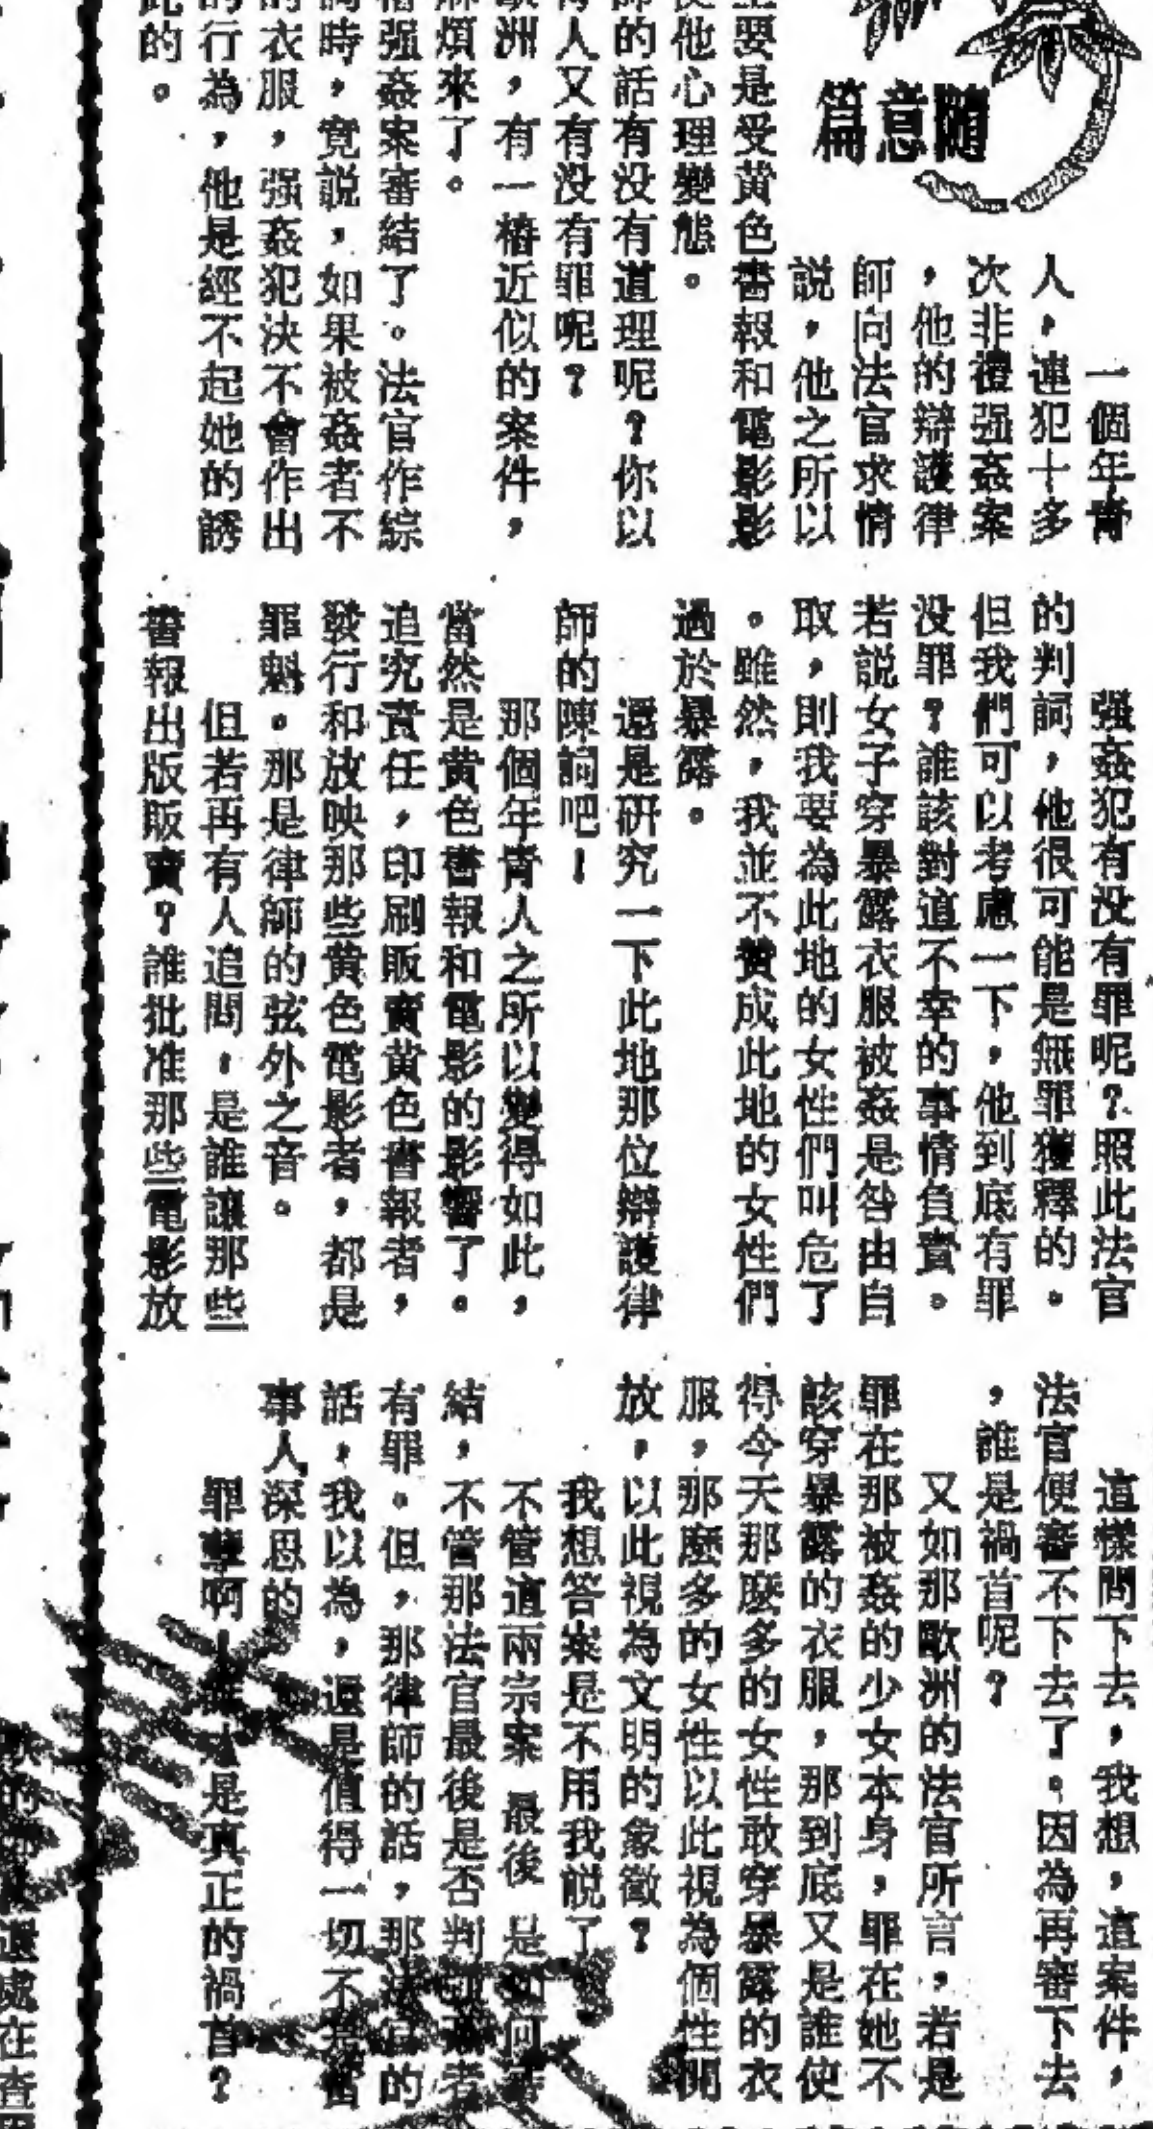 隨意篇
一個年青
人，連犯十多
次非禮强姦案
，他的辯護律
師向法官求情
說，他之所以
要是受黄色書報和電影影
他心理變態。
的話有没有道理呢？你以
人又有没有罪呢？
洲，有一樁近似的案件，
煩來了。
强姦案審結了。法官作綜
時，竟説，如果被姦者不
的衣服，强姦犯決不會作出
的行為，他是經不起她的誘
此的。
强姦犯有没有罪呢？照此法官
的判詞，他很可能是無罪獲釋的。
但我們可以考慮一下，他到底有罪
没罪？誰該對這不幸的事情負責。
若說女子穿暴露衣服被姦是咎由自
取，則我要為此地的女性們叫危了
。雖然，我並不贊成此地的女性們
過於暴露。
還是研究一下此地那位辯護律
師的陳詞吧！
那個年青人之所以變得如此，
當然是黄色書報和電影的影響了。
追究責任，印刷販賣黄色書報者，
發行和放映那些黄色電影者，都是
罪魁。那是律師的弦外之音。
但若再有人追問，是誰讓那些
書報出版販賣？誰批准那些電影放
這樣問下去，我想，這案件，
法官便審不下去了。因為再審下去
，誰是禍首呢？
又如那歐洲的法官所言，若是
罪在那被姦的少女本身，罪在她不
該穿暴露的衣服，那到底又是誰使
得今天那麼多的女性敢穿暴露的衣
服，那麼多的女性以此視為個性開
放，以此視為文明的象徵？
我想答案是不用我説了
不管這兩宗案 最後 是如何
結，不管那法官最後是否判
有罪。但，那律師的話，那法官的
話，我以為，還是值得一切不是當
事人深思的
罪孽啊！誰才是真正的禍首？
還處在查